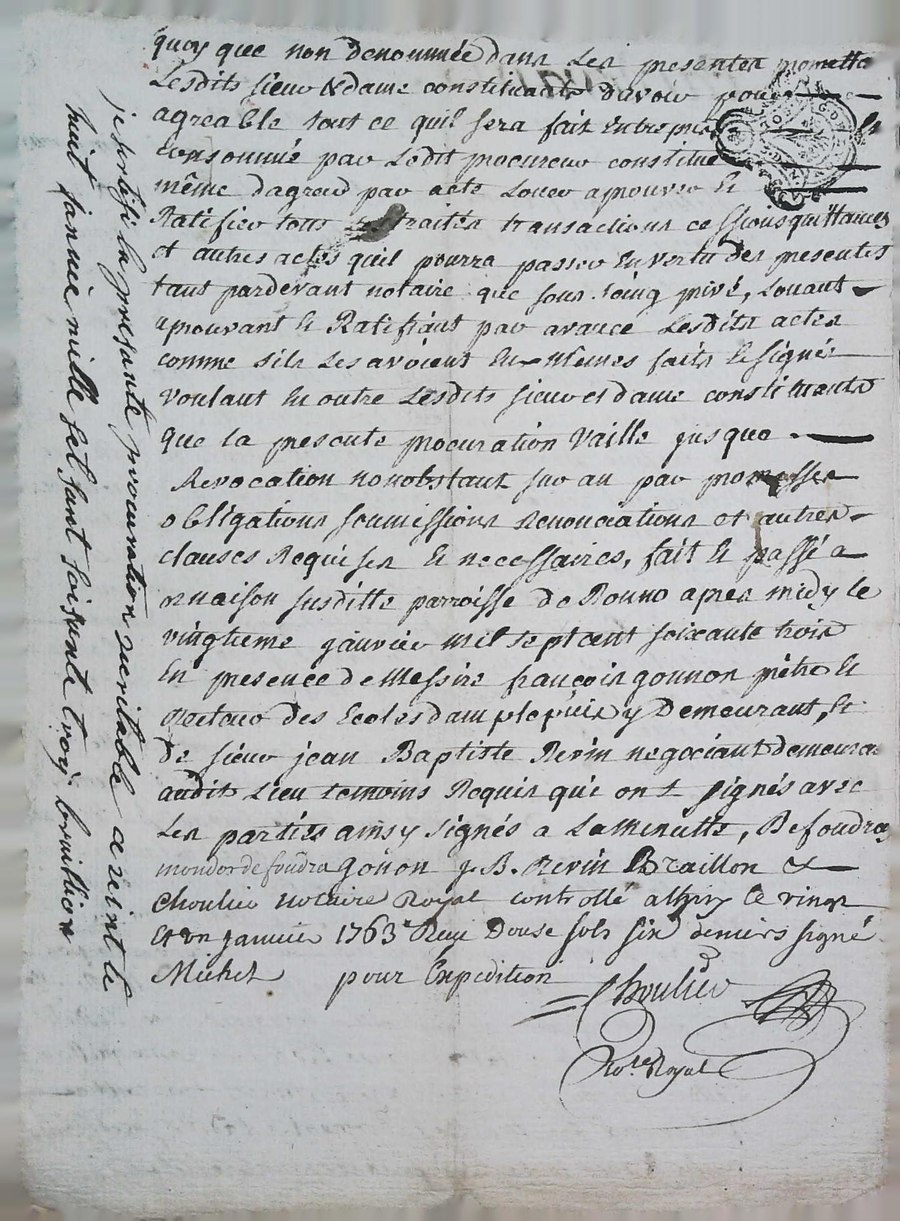 quoy que non denommée dans les presentes promettᵗ
Lesdits sieur & dame constituants d'avoir pour
agreable tout ce quil sera fait entrepris
consommé par Ledit procureur constitué
même dagreer par acte Louer aprouver &
Ratifier tous traités transactions cessions quittances
et autres actes quil pourra passer En vertu des presentes
tant pardevant notaire que sous seing privé, Louant
aprouvant & Ratifiant par avance Lesdits actes
comme sils Les avoient Eux mêmes faits & signés
voulant En outre Lesdits sieur et dame constituants
que la presente procuration Vaille jusque
Revocation nonobstant sur an par promesses
obligations soumissions renonciations et autres
clauses Requises & necessaires, fait & passé a
ornaison susditte parroisse de Ronno apres midy le
vingtieme janvier mil sept cent soixante trois
En presence de Messire françois gonnon prêtre &
Recteur des Ecoles damplepuis y Demeurant, &
de sieur jean Baptiste Revin negociant demeurant
audit Lieu temoins Requis qui ont signés avec
Les parties ainsy signés a La minutte, Defoudras
mondor de foudra gonon J. B. Revin Braillon &
Choulier notaire Royal controllé a thizy le vingt
et un janvier 1763 Reçu Douse sols six deniers signé
Michel pour Expedition
Choulier
Noʳᵉ Royal
je sertifi la presante procuration veritable a reint le
huit janvié mille set sant soisante troy bruillion